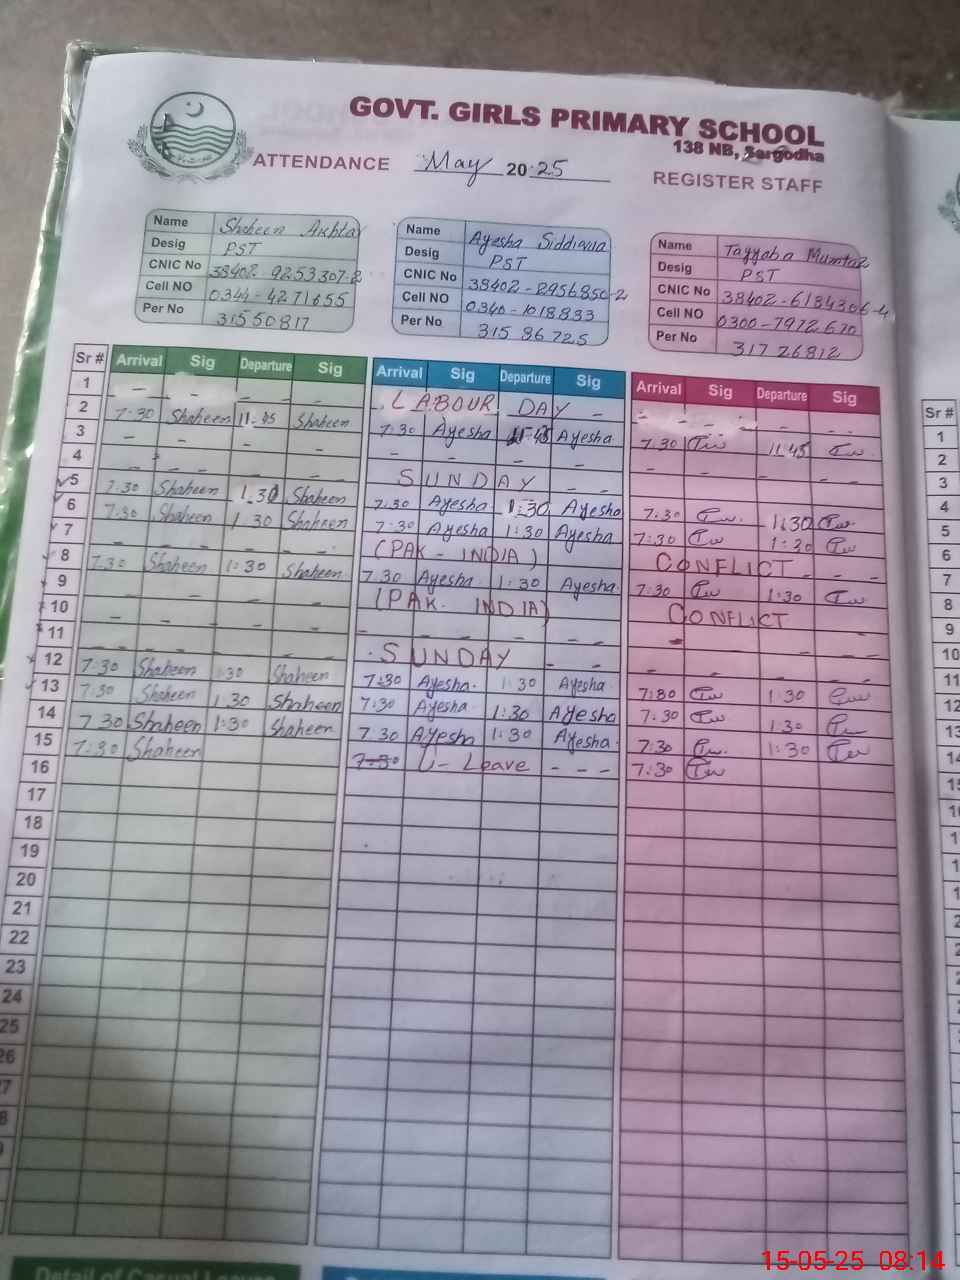 GOVT. GIRLS PRIMARY SCHOOL
138 NB, Sargodha
ATTENDANCE May 2025 REGISTER STAFF
Name Shaheen Akhtar
Desig PST
CNIC No 38402 9253307-2
Cell NO 0344-4271655
Per No 31550817
Name Ayesha Siddiqua
Desig PST
CNIC No 38402-2956850-2
Cell NO 0340-1018833
Per No 31536725
Name Tayyaba Mumtaz
Desig PST
CNIC No 38402-6184306-4
Cell NO 0300-7972610
Per No 31726812
Sr # Arrival Sig Departure Sig Arrival Sig Departure Sig Arrival Sig Departure Sig
1 - - - - LABOUR DAY - - - - -
2 7:30 Shaheen 11.45 Shaheen 7:30 Ayesha 11:45 Ayesha 7.30 11.45
3 - - - - - - - - - - - -
4 - - - - SUNDAY - - - - - -
5 7:30 Shaheen 1.30 Shaheen 7:30 Ayesha 1:30 Ayesha 7:30 1:30
6 7:30 Shaheen 1:30 Shaheen 7:30 Ayesha 1:30 Ayesha 7:30 1:30
7 - - - - (PAK-INDIA) CONFLICT - - -
8 7:30 Shaheen 1:30 Shaheen 7.30 Ayesha 1:30 Ayesha 7:30 1:30
9 - - - - (PAK. INDIA) CONFLICT
10 - - - - - - - - - - - -
11 - - - - SUNDAY - - - - - -
12 7:30 Shaheen 1:30 Shaheen 7:30 Ayesha 1:30 Ayesha 7:30 1:30
13 7:30 Shaheen 1:30 Shaheen 7:30 Ayesha 1:30 Ayesha 7:30 1:30
14 7 30 Shaheen 1:30 Shaheen 7:30 Ayesha 1:30 Ayesha 7:30 1:30
15 7:30 Shaheen 7:30 Leave - - - 7:30
16
17
18
19
20
21
22
23
24
25
26
Sr #
1
2
3
4
5
6
7
8
9
10
11
12
13
14
15-05-25 08:14